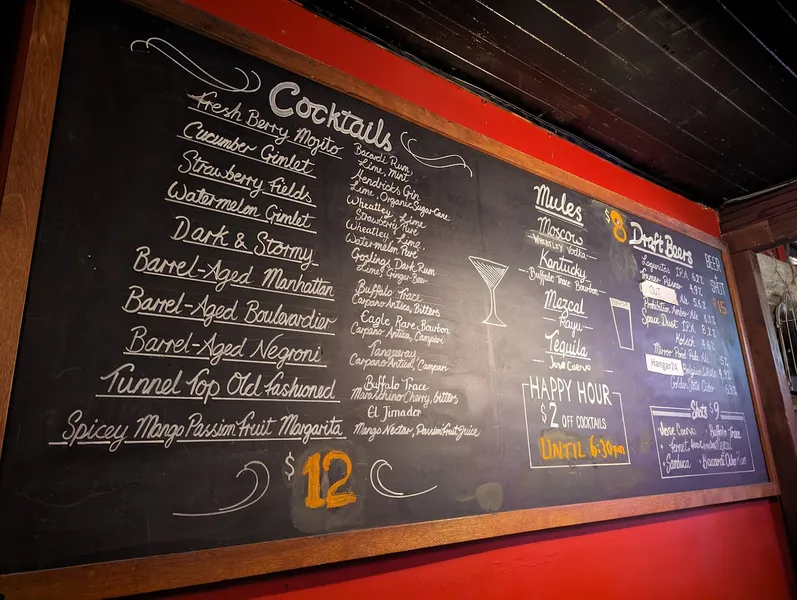 Cocktails
Fresh Berry Mojito
Bacardi Rum
Lime, Mint
Cucumber Gimlet
Hendricks Gin
Lime Organic Sugar Cane
Strawberry Fields
Wheatley, Lime
Strawberry Puré
Watermelon Gimlet
Wheatley, Lime,
Watermelon Puré
Dark & Stormy
Goslings Dark Rum
Lime, Ginger Beer
Barrel-Aged Manhattan
Buffalo Trace
Carpano Antica, Bitters
Barrel-Aged Boulevardier
Eagle Rare Bourbon
Carpano Antica, Campari
Barrel-Aged Negroni
Tanqueray
Carpano Antica, Campari
Tunnel Top Old Fashioned
Buffalo Trace
Maraschino Cherry, bitters
Spicey Mango Passion Fruit Margarita
El Jimador
Mango Nectar, Passion Fruit Juice
$12
Mules
Moscow
Wheatley Vodka
Kentucky
Buffalo Trace Bourbon
Mezcal
Tequila
Jose Cuervo
HAPPY HOUR
$2 OFF COCKTAILS
UNTIL 6:30pm
$8 Draft Beers
Lagunitas IPA 6.2%
Trumer Pilsner 4.9%
Out Ale 5.6%
Prohibition Amber Ale
Space Dust IPA 8.2%
Kolsch
Mirror Pond Pale Ale
Hangar24 Belgium White
Golden State Cider 6.3%
BEER
SHOT
Shots $9
Jose Cuervo · Buffalo Trace
Fernet
Sambuca